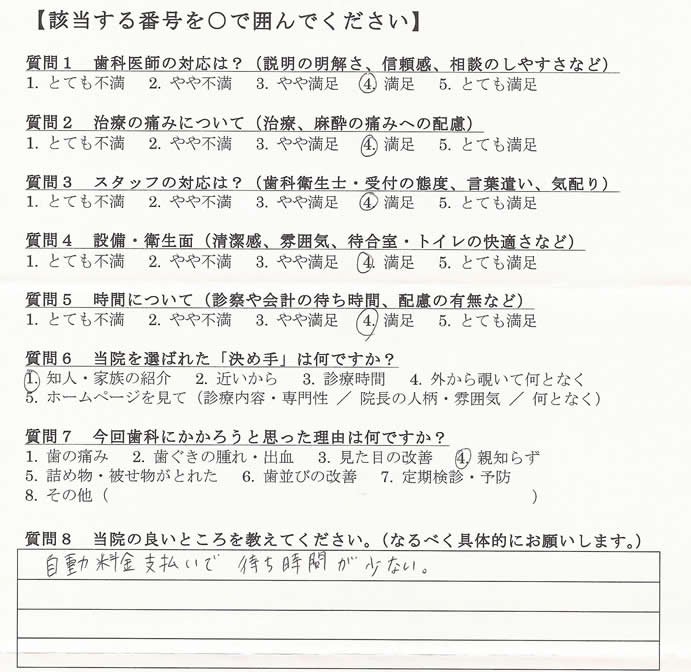 【該当する番号を○で囲んでください】
質問1 歯科医師の対応は？（説明の明解さ、信頼感、相談のしやすさなど）
1. とても不満 2. やや不満 3. やや満足 4. 満足 5. とても満足
質問2 治療の痛みについて（治療、麻酔の痛みへの配慮）
1. とても不満 2. やや不満 3. やや満足 4. 満足 5. とても満足
質問3 スタッフの対応は？（歯科衛生士・受付の態度、言葉遣い、気配り）
1. とても不満 2. やや不満 3. やや満足 4. 満足 5. とても満足
質問4 設備・衛生面（清潔感、雰囲気、待合室・トイレの快適さなど）
1. とても不満 2. やや不満 3. やや満足 4. 満足 5. とても満足
質問5 時間について（診察や会計の待ち時間、配慮の有無など）
1. とても不満 2. やや不満 3. やや満足 4. 満足 5. とても満足
質問6 当院を選ばれた「決め手」は何ですか？
1. 知人・家族の紹介 2. 近いから 3. 診療時間 4. 外から覗いて何となく
5. ホームページを見て（診療内容・専門性 ／ 院長の人柄・雰囲気 ／ 何となく）
質問7 今回歯科にかかろうと思った理由は何ですか？
1. 歯の痛み 2. 歯ぐきの腫れ・出血 3. 見た目の改善 4. 親知らず
5. 詰め物・被せ物がとれた 6. 歯並びの改善 7. 定期検診・予防
8. その他（ ）
質問8 当院の良いところを教えてください。（なるべく具体的にお願いします。）
自動料金支払いで 待ち時間が少ない。